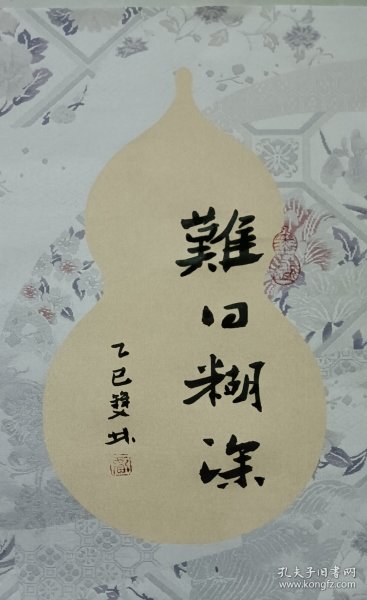 難曰糊涂
乙巳
孔夫子旧书网
www.kongfz.com